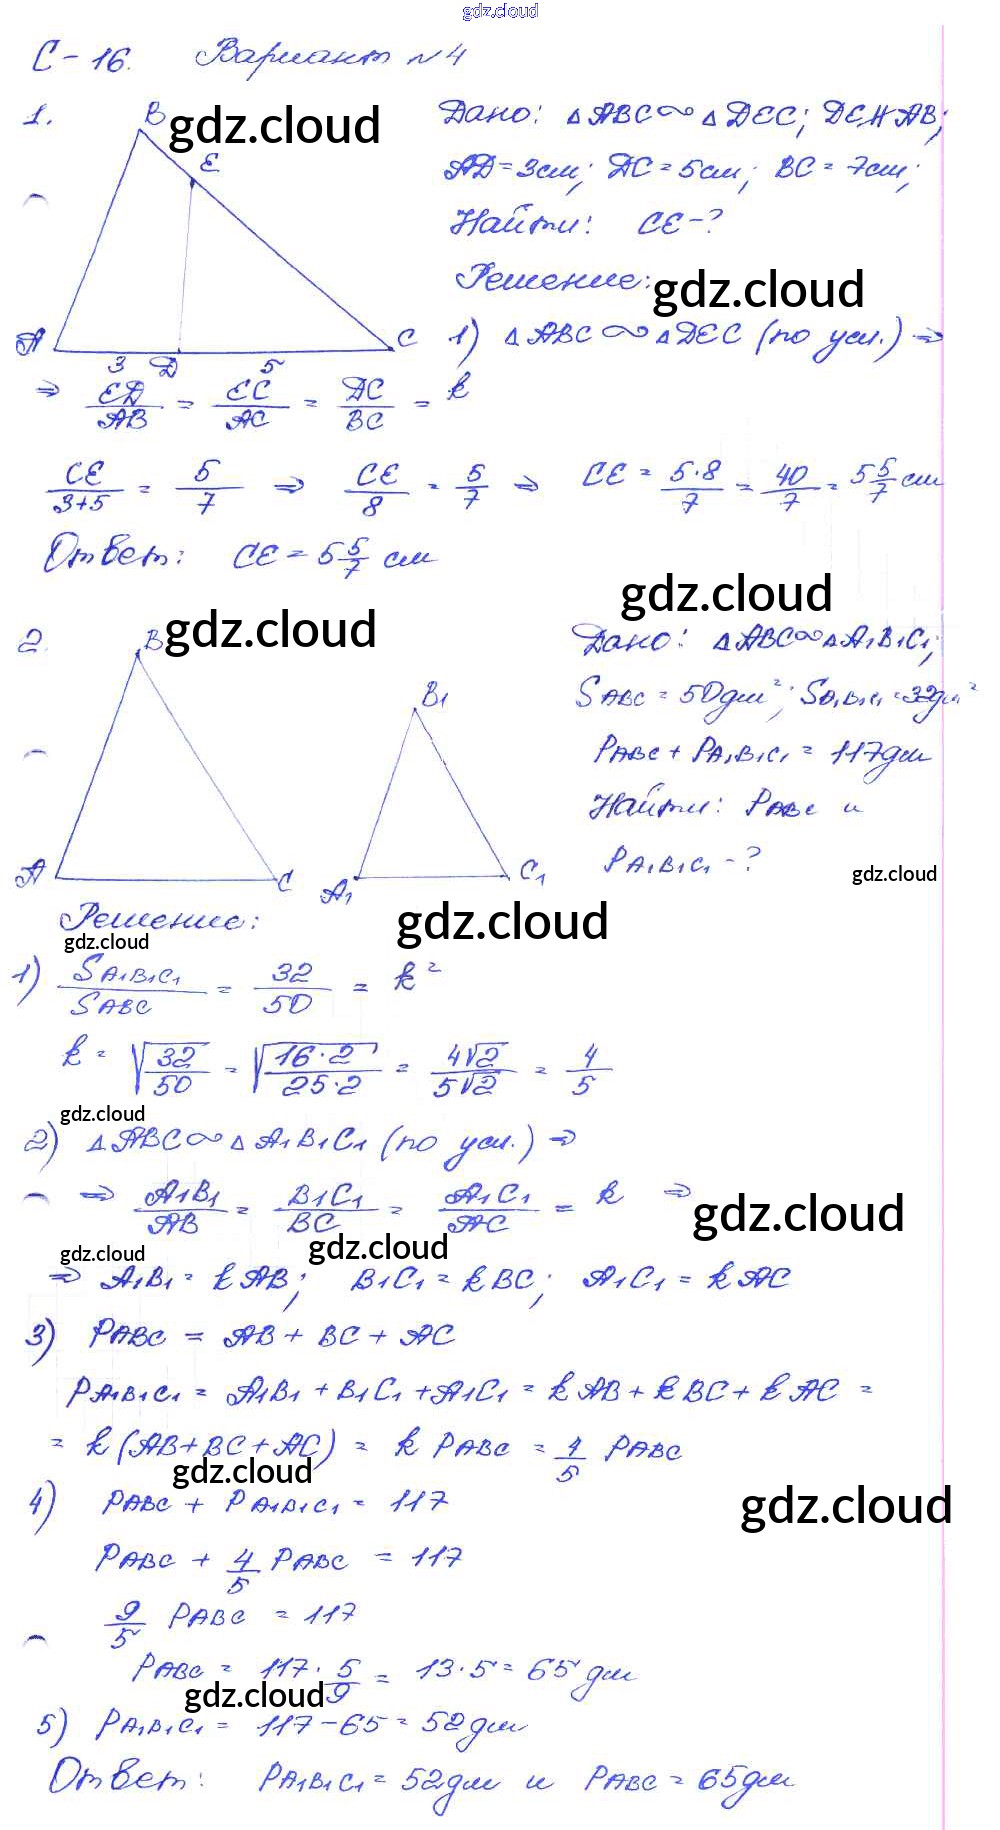 gdz.cloud
С-16. Вариант №4
1.
B
gdz.cloud
E
A
3
D
5
C
Дано: △ABC∾△DEC; DE∦AB;
AD=3см; DC=5см; BC=7см;
Найти: CE-?
Решение:
gdz.cloud
1) △ABC∾△DEC (по усл.) ⇒
⇒ ED/AB = EC/AC = DC/BC = k
CE/(3+5) = 5/7 ⇒ CE/8 = 5/7 ⇒ CE = 5·8/7 = 40/7 = 5 5/7 см
Ответ: CE = 5 5/7 см
gdz.cloud
2.
B
gdz.cloud
A
C
B1
A1
C1
Дано: △ABC∾△A1B1C1;
SABC = 50дм²; SA1B1C1 = 32дм²
PABC + PA1B1C1 = 117дм
Найти: PABC и
PA1B1C1 - ?
gdz.cloud
Решение:
gdz.cloud
gdz.cloud
1) SA1B1C1/SABC = 32/50 = k²
k = √(32/50) = √(16·2/25·2) = 4√2/5√2 = 4/5
gdz.cloud
2) △ABC∾△A1B1C1 (по усл.) ⇒
⇒ A1B1/AB = B1C1/BC = A1C1/AC = k ⇒
gdz.cloud
gdz.cloud
gdz.cloud
⇒ A1B1 = kAB; B1C1 = kBC; A1C1 = kAC
3) PABC = AB + BC + AC
PA1B1C1 = A1B1 + B1C1 + A1C1 = kAB + kBC + kAC =
= k(AB+BC+AC) = k PABC = 4/5 PABC
gdz.cloud
4) PABC + PA1B1C1 = 117
gdz.cloud
PABC + 4/5 PABC = 117
9/5 PABC = 117
PABC = 117 · 5/9 = 13·5 = 65 дм
gdz.cloud
5) PA1B1C1 = 117-65 = 52дм
Ответ: PA1B1C1 = 52дм и PABC = 65дм